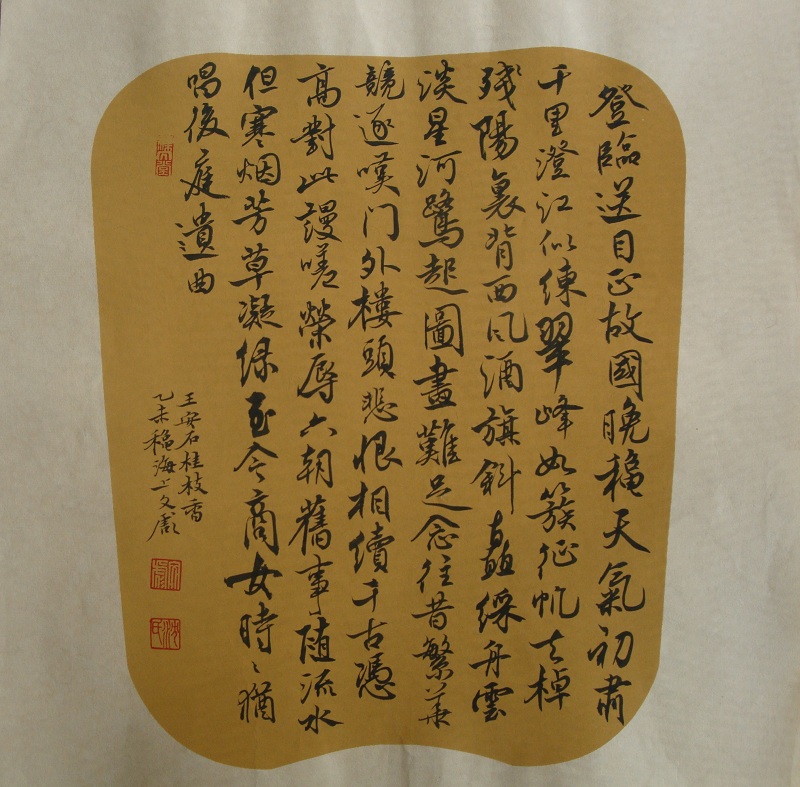 登臨送目正故國晚穐天氣初肅
千里澄江似練翠峰如簇征帆去棹
殘陽裏背西风酒旗斜矗綵舟雲
淡星河鷺起圖畫難足念往昔繁華
競逐嘆门外樓頭悲恨相續千古憑
高對此謾嗟榮辱六朝舊事随流水
但寒烟芳草凝绿至今商女時〻猶
唱後庭遺曲
王安石桂枝香
乙未穐海上文